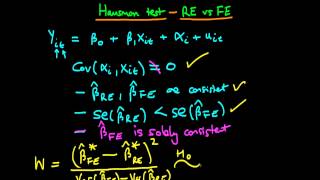 Hausman test - RE vs FE
Yit = β0 + β1 xit + αi + uit
Cov(αi, xit) = 0 ✓
- β̂RE, β̂FE are consistent ✓
- se(β̂RE) < se(β̂FE) ✓
- β̂FE is solely consistent
W = (β̂*FE - β̂*RE)² H0 ~